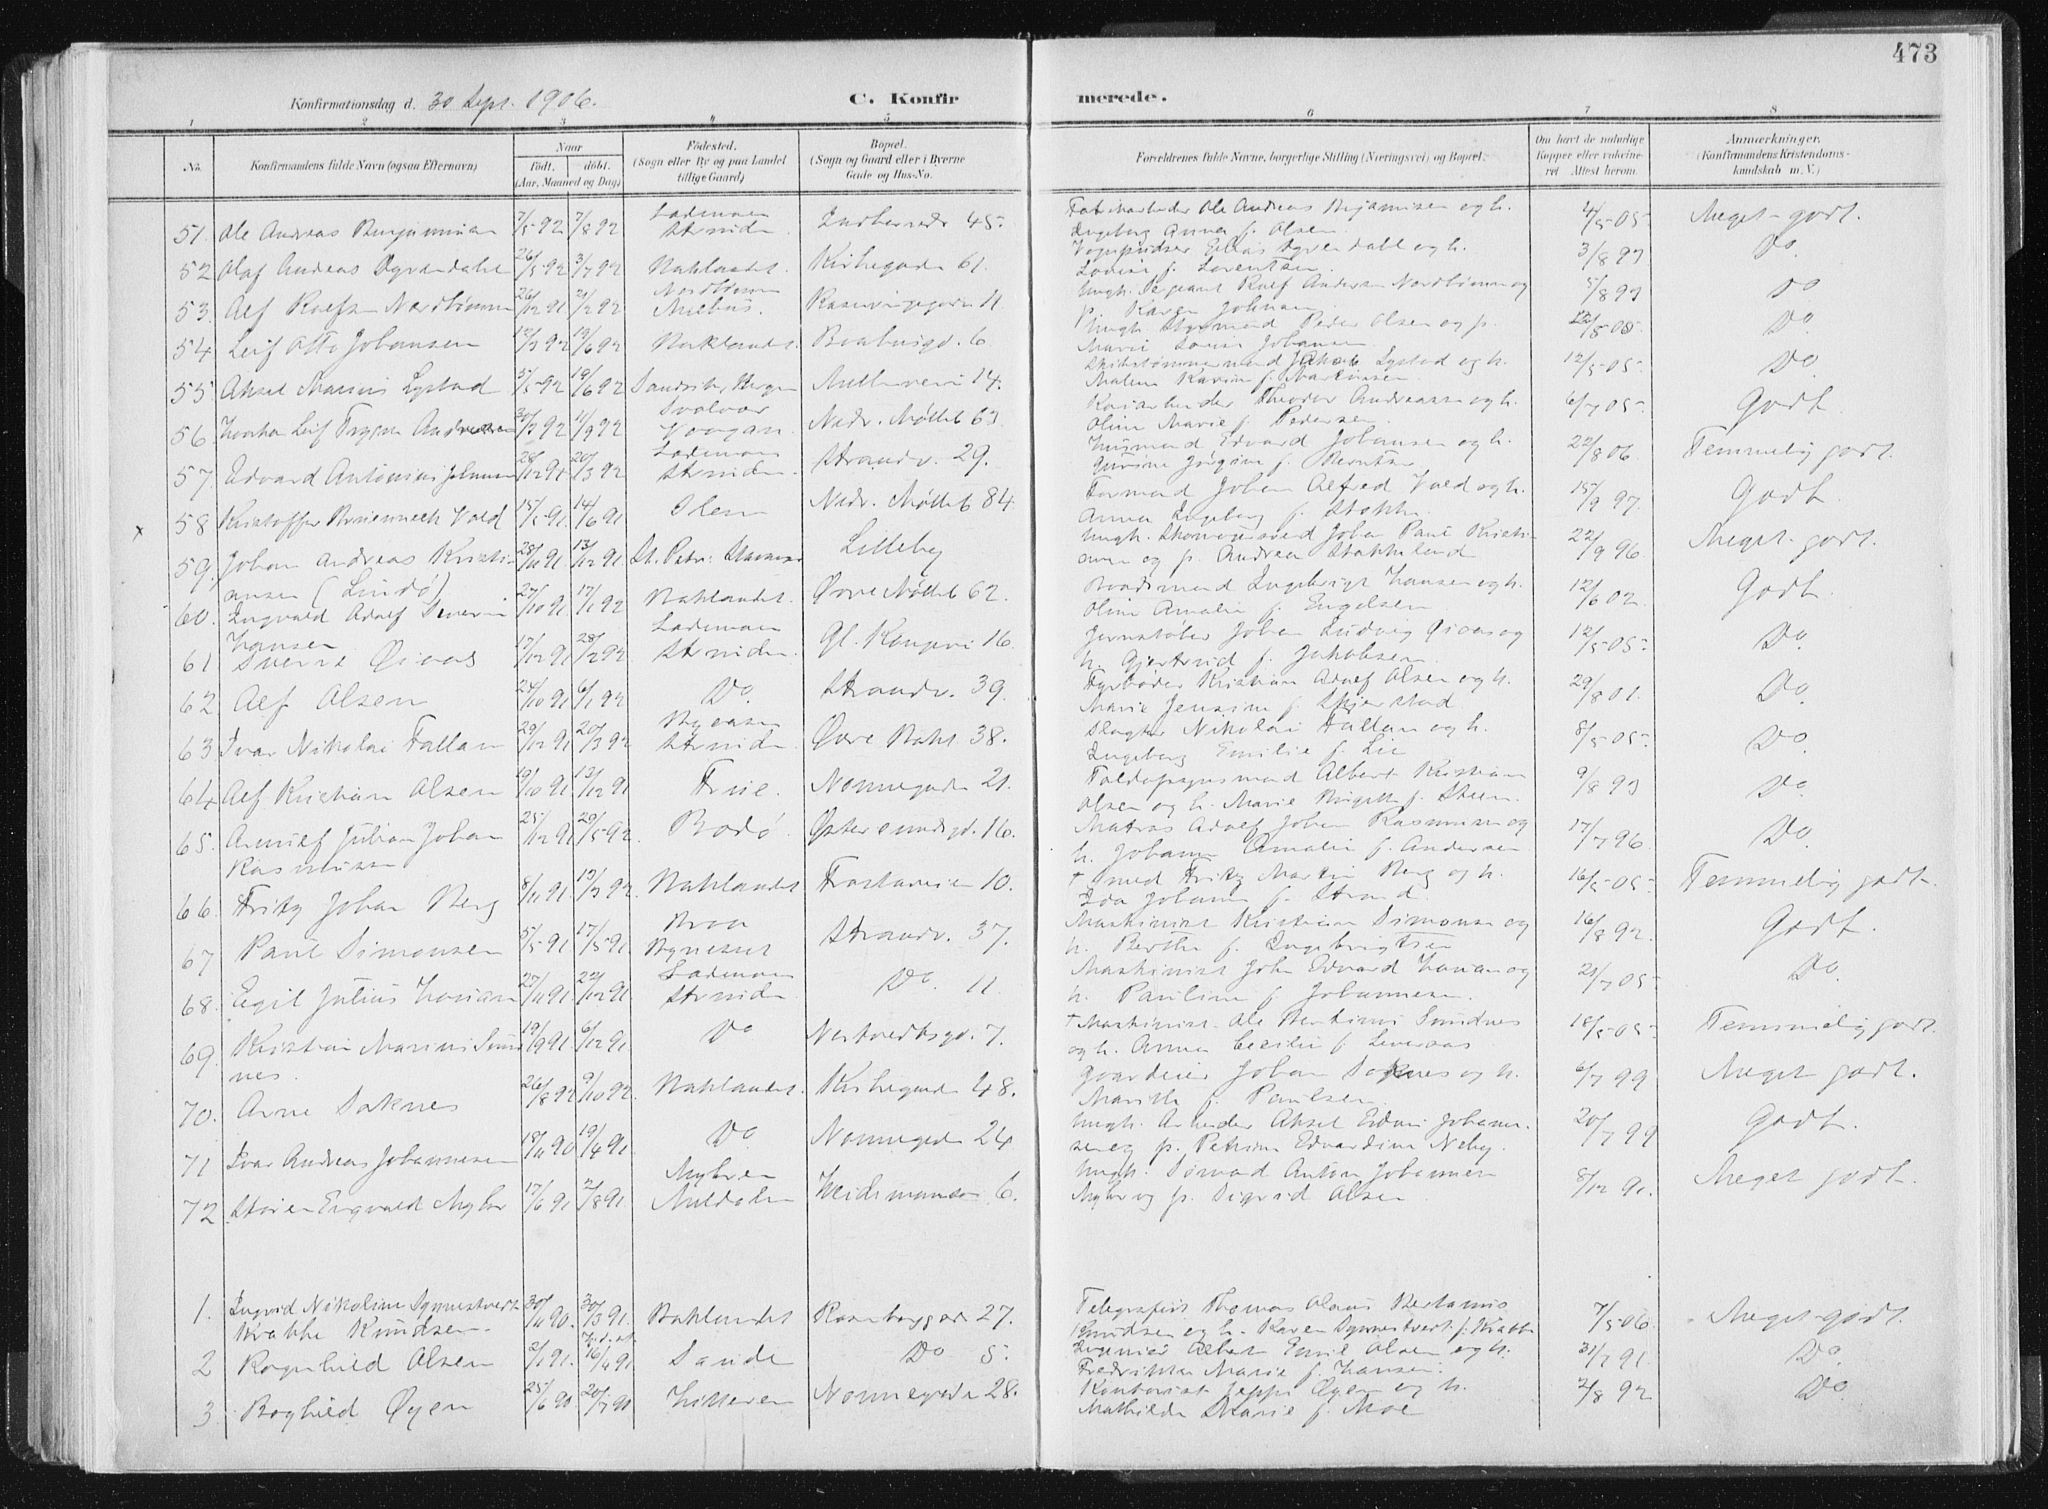 473
Konfirmationsdag d. 30 Sept. 1906. C. Konfirmerede.
1 2 3 4 5 6 7 8
No. Konfirmandens fulde Navn (ogsaa Efternavn) Naar født, døbt. (Aar, Maaned og Dag) Fødested. (Sogn eller By og paa Landet tillige Gaard) Bopæl. (Sogn og Gaard eller i Byerne Gade og Hus-No. Forældrenes fulde Navne, borgerlige Stilling (Næringsvei) og Bopæl. Om havt de naturlige Kopper eller vakcineret. Attest herom. Anmærkninger. (Konfirmandens Kristendomskundskab m. V.)
51. Ole Andreas Benjaminsen 7/5 92 7/8 92 Lademoen Strinden Indherredsv 45. Fabrikarbeider Ole Andreas Benjaminsen og h. Ingeborg Anna f. Olsen. 4/5 05 Meget godt.
52 Olaf Andreas Dyrendahl 26/5 92 3/7 92 Baklandet. Kirkegaden 61. Vognpudser Elias Dyrendahl og h. Lovise f. Lorentsen. 3/8 93 Do.
53. Alf Roelfsen Nordtømme 26/12 91 21/2 92 Melhus. 11 Ungk. Sergeant Roelf Andersen Nordtømme og p. Karen Johnsen 5/8 93 Do
54. Leif Otto Johansen 12/3 92 19/6 92 Baklandet. Bakkegd. 6. Ungk. Styrmand Peder Olsen og p. Marie Lovise Johansen 12/5 05. Do.
55 Aksel Marius Lystad 5/5 92 19/6 92 Sandviken, Bergen Mellemveien 14. Skibstømmermand Jakob Lystad og h. Malena Karine f. Markussen. 12/5 05. Do.
56. Haakon Leif Trygve Andreassen 30/3 92 11/9 92 Svolvær Vaagan Nedr. Møllebg 63 Theodor Andreassen og h. Oline Marie f. Pedersen. 6/7 05. Godt
57. Edvard Antonius Johansen 28/12 91 20/3 92 Lademoen Strinden. Strandv. 29. Husmand Edvard Johansen og h. Gurine Jørgine f. Berntsen 22/8 06. Temmelig godt.
x 58 Kristoffer Vold 15/5 91. 14/6 91 Nedr. Møllebg 84. Formand Johan Alfred Vold og h. Anna Ingeborg f. Stokke. 15/9 97. Godt.
59. Johan Andreas Kristiansen (Lindø) 28/10 91 13/12 91 St. Petri. Stavanger Lilleby Ungk. Johan Paul Kristiansen og p. Andrea Stokkeland 22/9 96 Meget godt.
60. Ingvald Adolf Severin Hansen 27/10 91 17/1 92 Baklandet. Øvre Møllebg 62. Ingebrigt Hansen og h. Oline Amalie f. Engelsen. 12/6 02. Godt.
61 Sverre Øiaas 17/12 91 28/2 92 Lademoen Strinden. Gl. Kongevei 16. Jernstøber Johan Ludvig Øiaas og h. Gjertrud f. Jakobsen. 12/5 05. Do.
62. Alf Olsen 24/10 91 6/1 92 Do Strandv. 39. Fyrbøder Kristian Adolf Olsen og h. Marie Jensine f. Skjerstad 29/8 01. Do
63 Ivar Nikolai Hallan 29/12 91. 20/3 92 Byaasen Strinden. Øvre Bakl 38. Slagter Nikolai Hallan og h. Ingeborg Emilie f. Lie 8/5 05. Do.
64. Alf Kristian Olsen 19/10 91 13/12 91 Frue. Nonnegaden 21. Toldopsynsmand Albert Kristian Olsen og h. Marie Birgitte f. Steen. 9/8 93 Do.
65. Arnulf Julian Johan Rasmussen 25/12 91 29/5 92. Bodø. Østersundsgd. 16. Matros Adolf Johan Rasmussen og h. Johanna Amalie f. Andersen 17/7 96. Do.
66. Fritz Johan Berg 8/11 91. 13/3 92. Baklandet Frostaveien 10. + Smed Fritz Martin Berg og h. Ida Johanna f. Strand. 16/5 05. Temmelig godt.
67 Paul Simonsen 5/5 91 17/5 91. Byneset Strandv. 37. Maskinist Kristian Simonsen og h. Berthe f. Ingebrigtsen 16/8 92. Godt.
68. Egil Julius Hansen 27/11 91. 22/12 91. Lademoen Strinden. Do. 11. Maskinist John Edvard Hansen og h. Pauline f. Johannesen. 21/7 05. Do.
69. Kristian Marius Sundnes. 19/9 91. 6/12 91. Do Nestvedtsgd. 7. + Maskinist Ole Bertinus Sundnes og h. Anna Cecilie f. Leveraas 18/5 05. Temmelig godt.
70. Arne Saknes 26/8 92 9/10 92. Baklandet. Kirkegaden 48. Gaardeier Johan Saknes og h. Marith f. Paulsen. 6/7 99 Meget godt.
71 Ivar Andreas Johannesen 18/11 90 19/4 91. Do Nonnegaden 24. Ungk. Arbeider Aksel Edvin Johannesen og p. Petrine Edvardine Neby. 20/7 99 Godt.
72 Myhre 17/6 91 2/8 91 Myhren Meldalen 6. Ungk. Sømand Anton Johannesen Myhre og p. Sigrid Olsen. 8/12 91. Meget godt.
1. Ingrid Nikoline Synnestvedt Krabbe Knudsen. 30/11 90. 30/3 91. Baklandet Rosenborggaden 27. Telegrafist Thomas Olaus Bertinius Knudsen og h. Karen Synnestvedt f. Krabbe 7/5 06. Meget godt.
2 Ragnhild Olsen 2/1 91. 16/4 91 Sande Do 5. Albert Emil Olsen og h. Fredrikke Marie f. Hansen. 31/7 91. Do.
3 Borghild Øyen 25/6 90. 20/7 90 Hitteren Nonnegaden 28. Kontorist Jeppe Øyen og h. Mathilde Marie f. Moe 2/8 92 Do